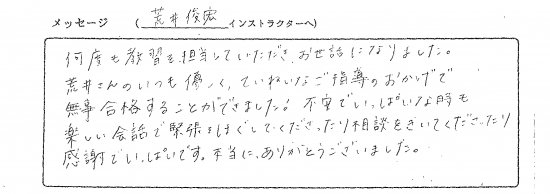 メッセージ （荒井俊宏インストラクターへ）
何度も教習を担当していただき、お世話になりました。
荒井さんのいつも優しく、ていねいなご指導のおかげで
無事合格することができました。不安でいっぱいな時も
楽しい会話で緊張をほぐしてくださったり相談をきいてくださったり
感謝でいっぱいです。本当に、ありがとうございました。